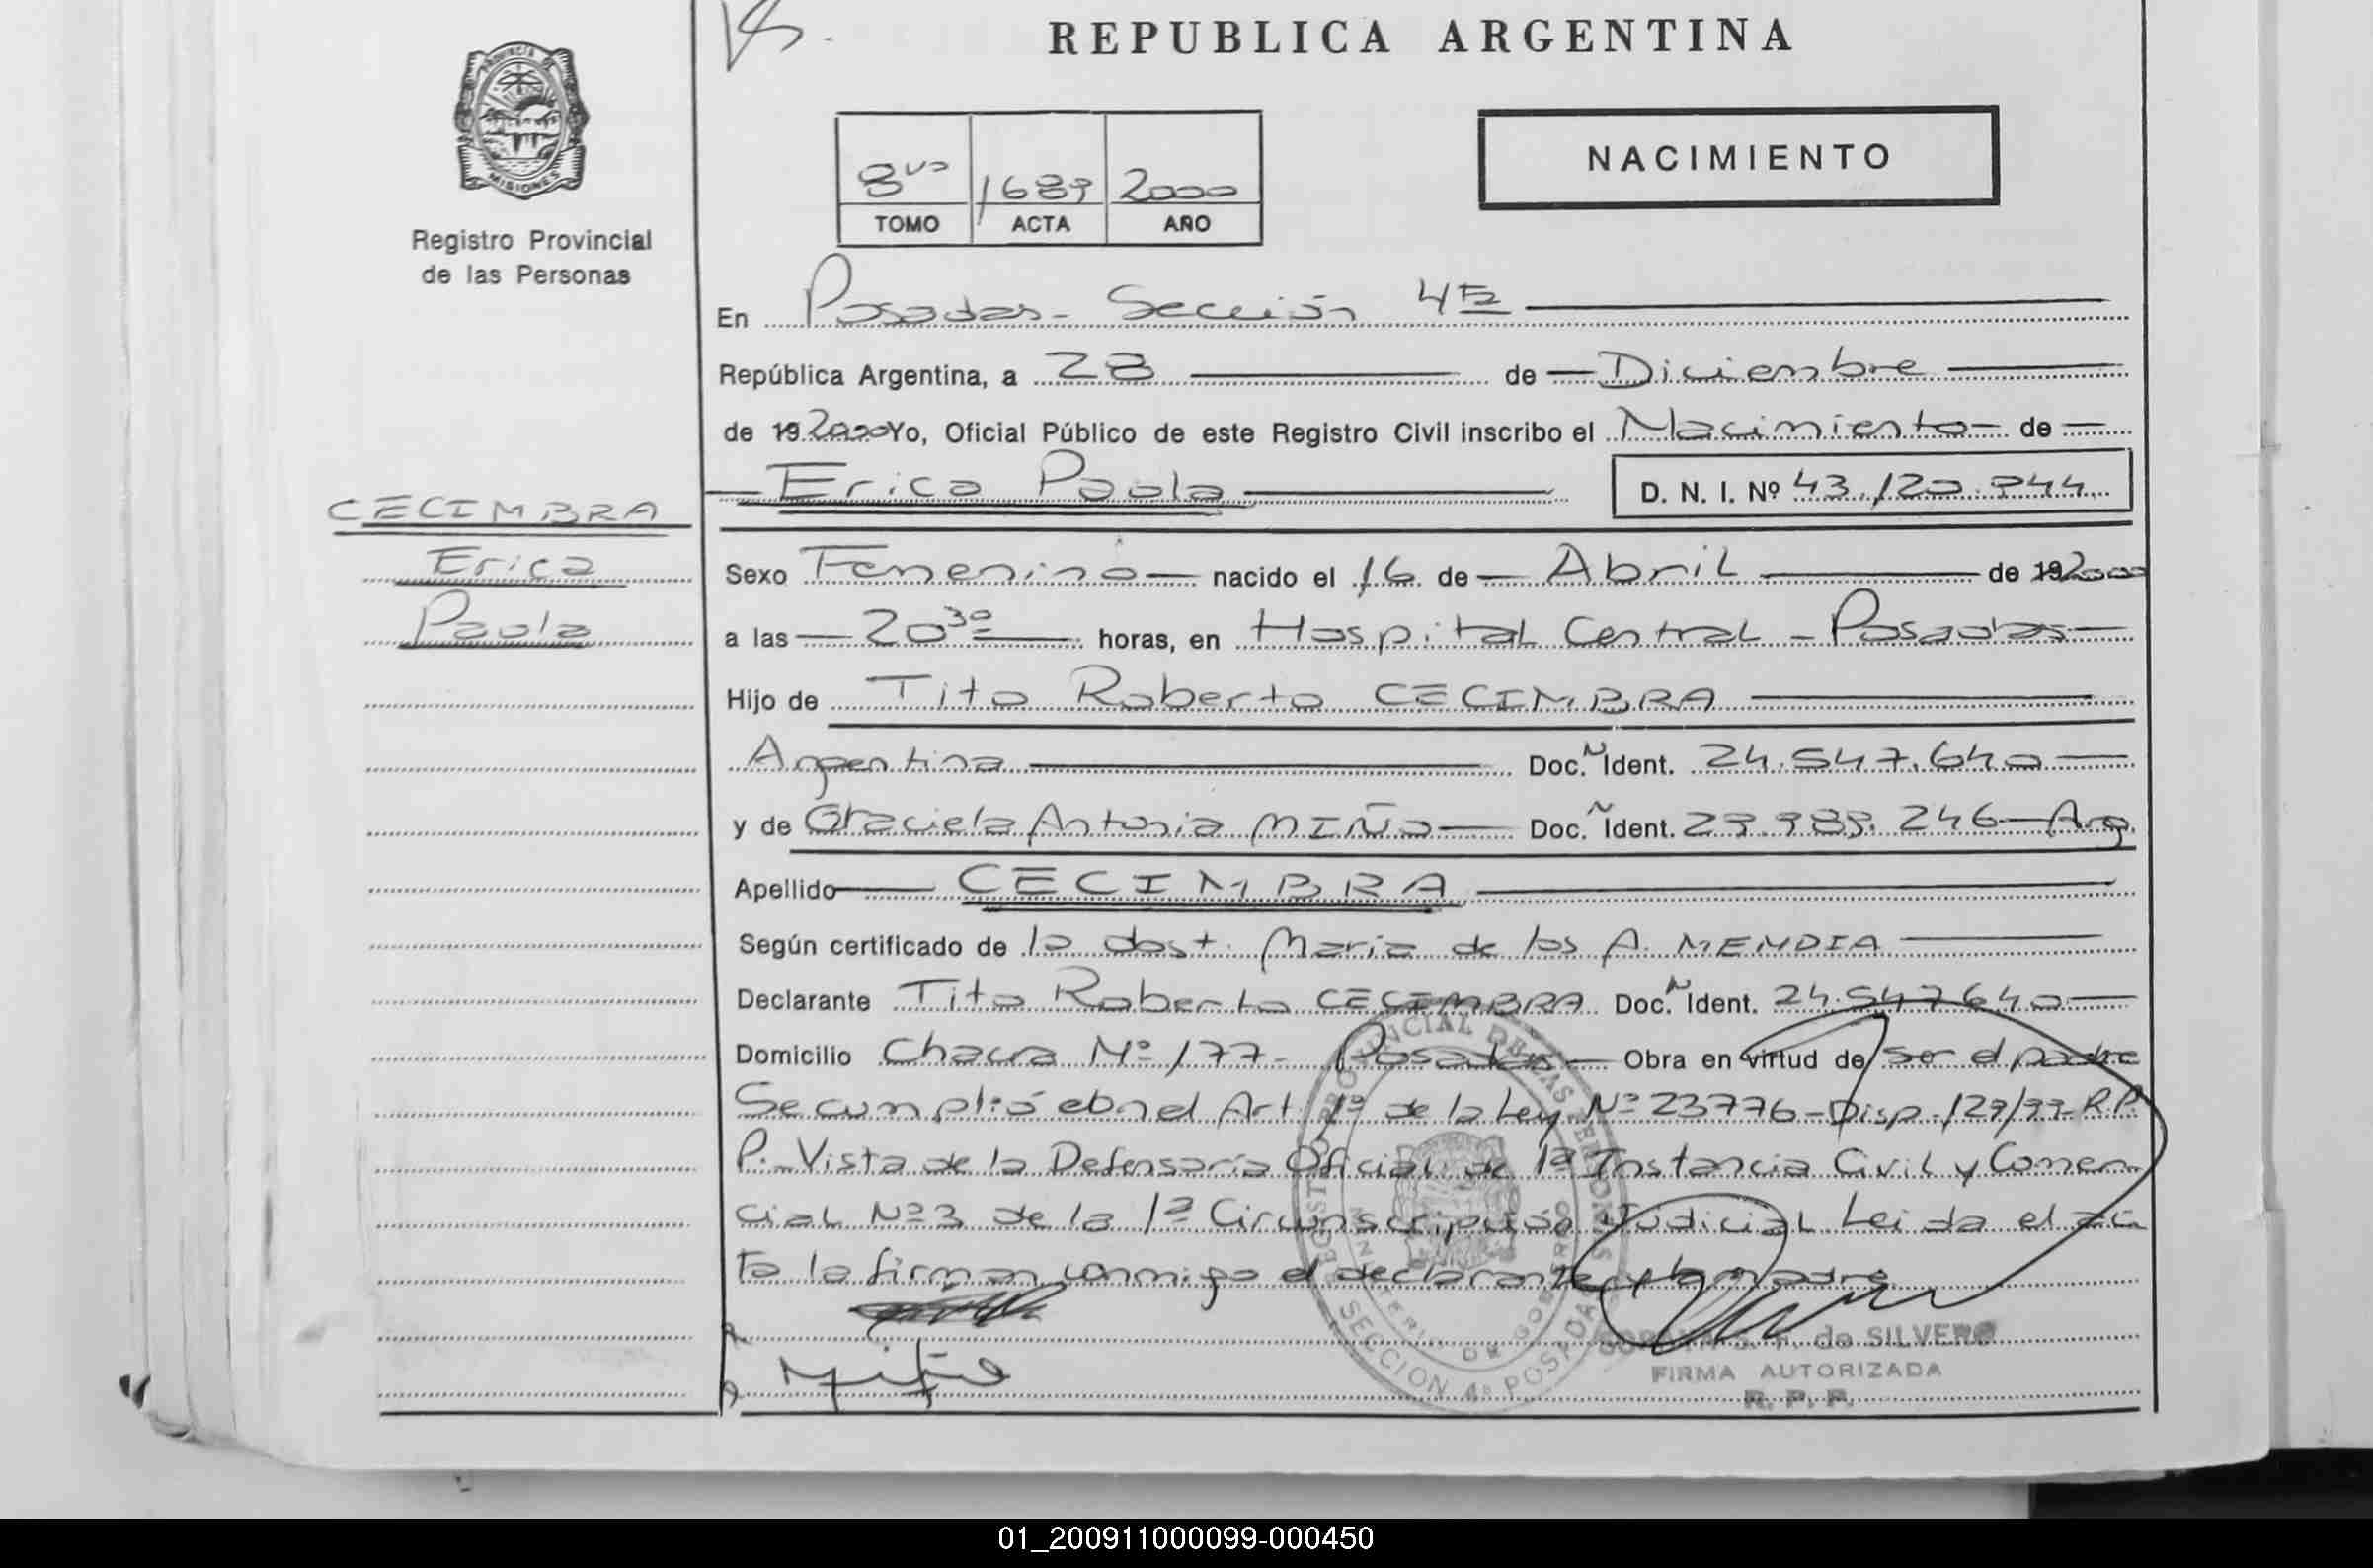 REPUBLICA ARGENTINA
PROVINCIA DE MISIONES
Registro Provincial
de las Personas
8vo 1689 2000
TOMO ACTA AÑO
NACIMIENTO
En Posadas - Sección 4ta
República Argentina, a 28 de Diciembre
de 19 2000 Yo, Oficial Público de este Registro Civil inscribo el Nacimiento de
Erica Paola
D. N. I. Nº 43.120.944
CECIMBRA
Erica
Paola
Sexo Femenino nacido el 16 de Abril de 19 2000
a las 20 30 horas, en Hospital Central - Posadas
Hijo de Tito Roberto CECIMBRA
Argentina Doc. N Ident. 24.547.640
y de Graciela Antonia MIÑO Doc. N Ident. 29.989.246 - Arg.
Apellido CECIMBRA
Según certificado de la obst. Maria de los A. MENDIA
Declarante Tito Roberto CECIMBRA Doc. N Ident. 24.547.640
Domicilio Chacra Nº 177 - Posadas Obra en virtud de ser el padre
Se cumplió con el Art. 1º de la Ley Nº 23776 - Disp. 129/99 - R.P.
P. - Vista de la Defensoría Oficial de 1ª Instancia Civil y Comer-
cial Nº 3 de la 1ª Circunscripción Judicial. Leida el ac
ta la firman conmigo el declarante y la madre
Miño
REGISTRO PROVINCIAL DE LAS PERSONAS
MINISTERIO DE GOBIERNO
SECCION 4ª POSADAS
de SILVERO
FIRMA AUTORIZADA
R. P. P.
01_200911000099-000450